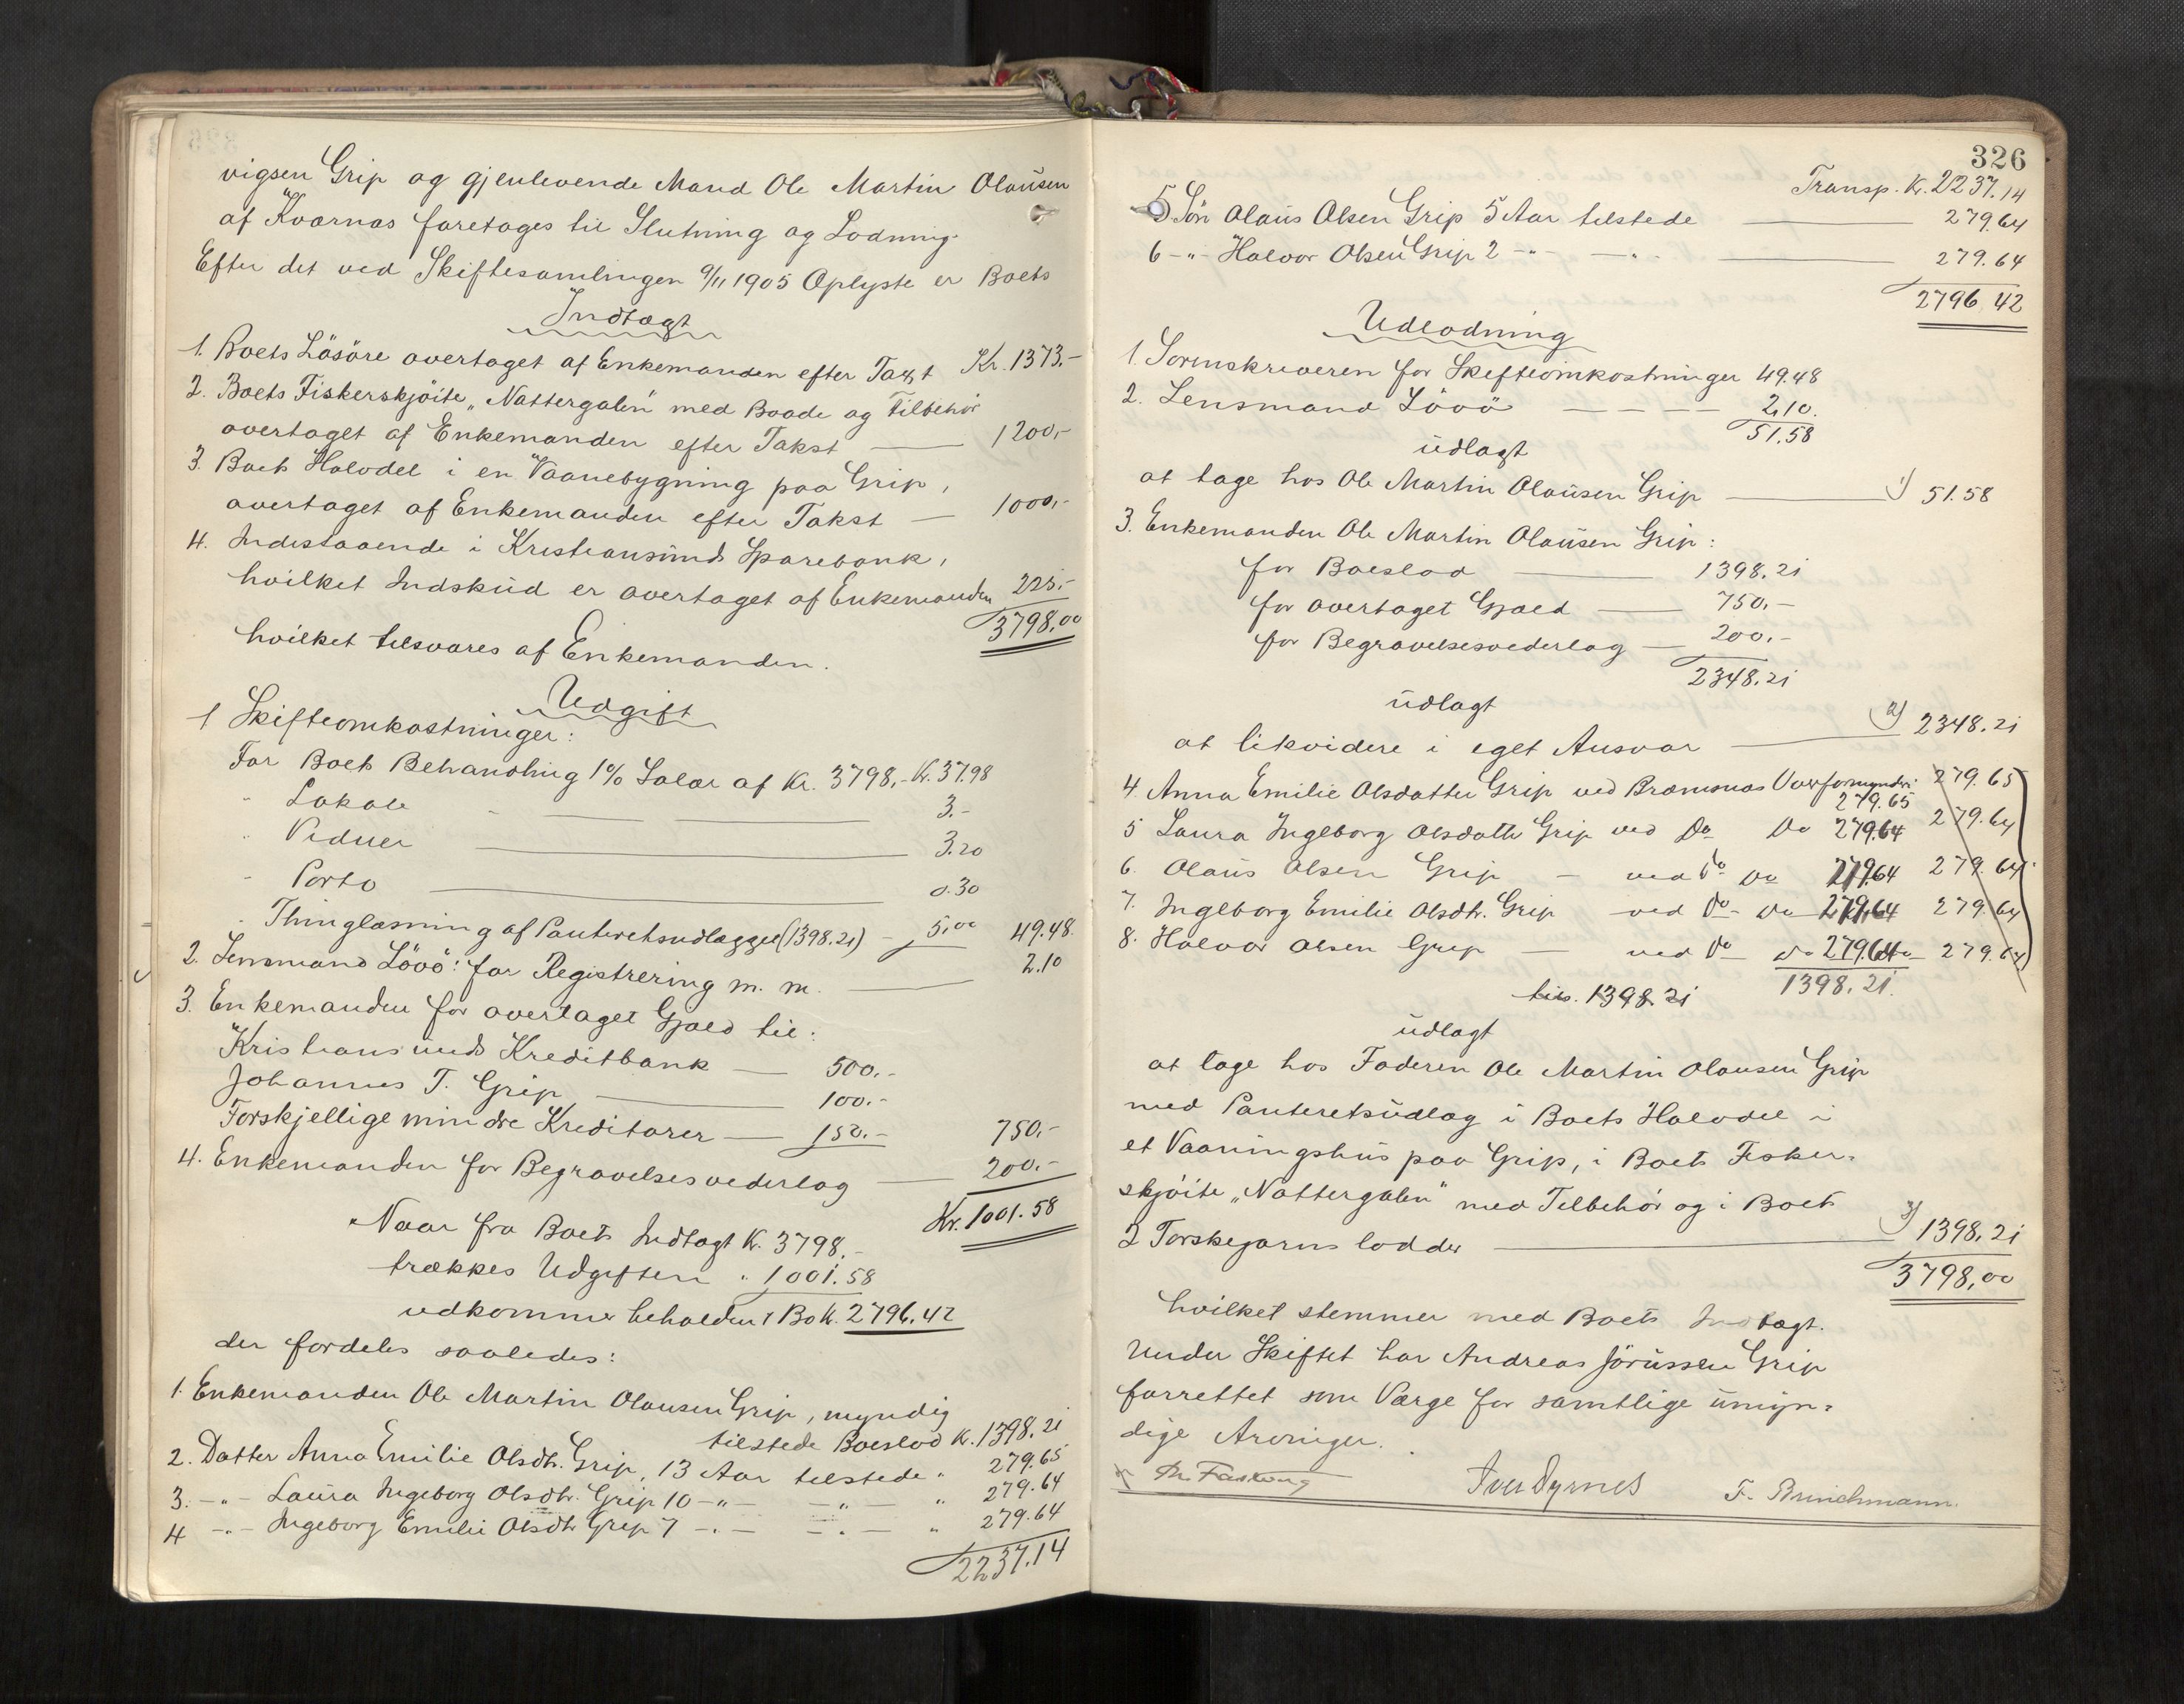 vigsen Grip og gjenlevende Mand Ole Martin Olausen
af Kværnæs foretages til Slutning og Lodning.
Efter det ved Skiftesamlingen 9/11 1905 Oplyste er Boets
Indtægt
1. Boets Lösöre overtaget af Enkemanden efter Taxt Kr. 1373.-
2. Boets Fiskerskjöite „Nattergalen" med Baade og Tilbehör
overtaget af Enkemanden efter Takst — 1200,-
3. Boets Halvdel i en Vaanebygning paa Grip,
overtaget af Enkemanden efter Takst — 1000,-
4. Indestaaende i Kristiansunds Sparebank,
hvilket Indskud er overtaget af Enkemanden 225.-
3798.00
hvilket tilsvares af Enkemanden.
Udgift
1 Skifteomkostninger:
For Boets Behandling 1% Salær af Kr. 3798,- Kr. 37.98
" Lokale — 3.-
" Vidner — 3.20
" Porto — 0.30
" Thinglæsning af Panteretsudlægget (1398.21) - 5,00 49.48.
2. Lensmand Lövö: for Registrering m. m. — 2.10
3. Enkemanden for overtaget Gjæld til:
Kristiansunds Kreditbank — 500.-
Johannes T. Grip — 100.-
Forskjellige mindre Kreditorer — 150.- 750,-
4. Enkemanden for Begravelsesvederlag — 200.-
Kr. 1001.58
Naar fra Boets Indtægt K. 3798.-
trækkes Udgiften " 1001.58
udkommer beholden i Bo K. 2796.42
der fordeles saaledes:
1. Enkemanden Ole Martin Olausen Grip, myndig
tilstede Boeslod K. 1398.21
2. Datter Anna Emilie Olsdtr. Grip, 13 Aar tilstede " 279.65
3. -"- Laura Ingeborg Olsdtr. Grip 10 -"- -"- " 279.64
4 -"- Ingeborg Emilie Olsdtr Grip 7 -"- -"- " 279.64
2237.14
326
Transp. K. 2237.14
5 Sön Olaus Olsen Grip 5 Aar tilstede — 279.64
6 -"- Halvor Olsen Grip 2 -"- -"- — 279.64
2796.42
Udlodning
1. Sorenskriveren for Skifteomkostninger 49.48
2. Lensmand Lövö — — — 2,10.
51.58
udlagt
at tage hos Ole Martin Olausen Grip — 1) 51.58
3. Enkemanden Ole Martin Olausen Grip:
for Boeslod — 1398.21
for overtaget Gjæld — 750.-
for Begravelsesvederlag — 200.-
2348.21
udlagt
at likvidere i eget Ansvar — 2) 2348.21
4. Anna Emilie Olsdatter Grip ved Bremsnæs Overformynderi 279.65
279.65
5 Laura Ingeborg Olsdattr Grip ved Do Do 279.64 279.64
6. Olaus Olsen Grip — ved Do Do 279.64 279.64
7. Ingeborg Emilie Olsdtr. Grip ved Do- Do 279.64 279.64
8. Halvor Olsen Grip — ved Do Do 279.64 279.64
tils. 1398.21 1398.21.
udlagt
at tage hos Faderen Ole Martin Olausen Grip
med Panteretsudlæg i Boets Halvdel i
et Vaaningshus paa Grip, i Boets Fisker-
skjöite „Nattergalen" med Tilbehör og i Boets
2 Torskegarns lodder — 3) 1398.21
3798,00
hvilket stemmer med Boets Indtægt.
Under Skiftet har Andreas Jörussen Grip
forrettet som Værge for samtlige umyn-
dige Arvinger.
Iver Dyrnes F. Brinchmann.